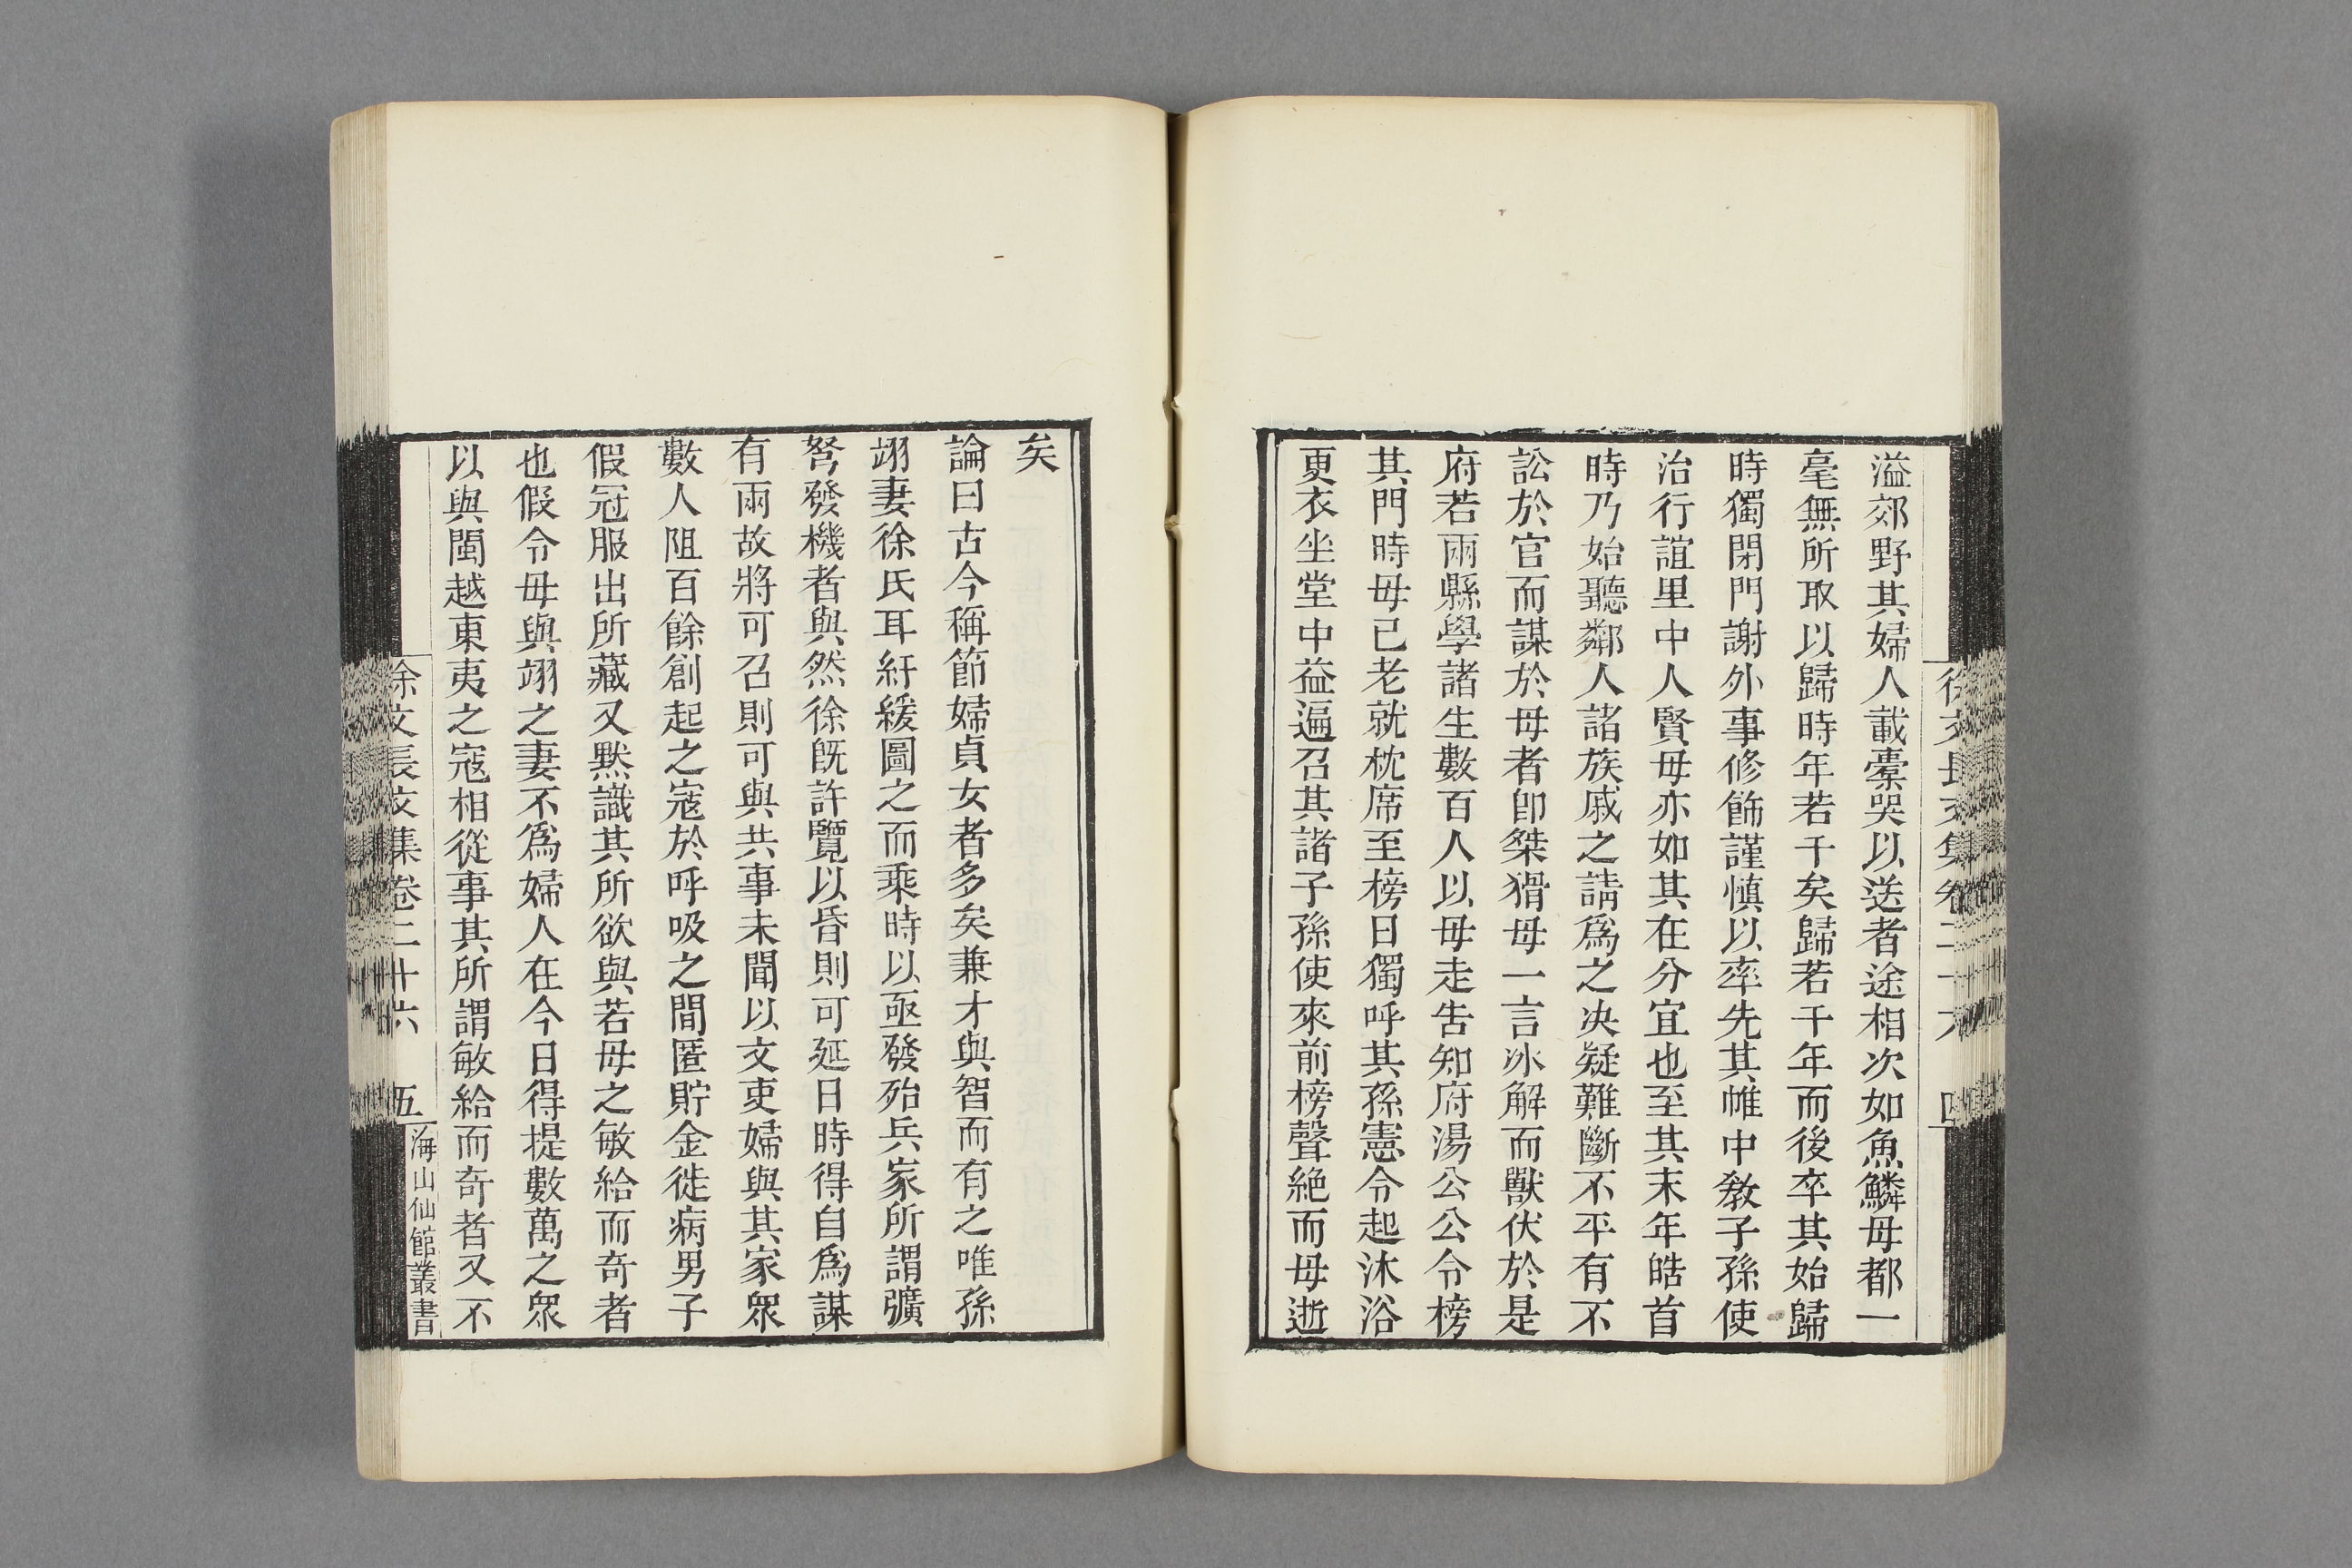 溢郊野其婦人載橐哭以送者途相次如魚鱗母都一
毫無所取以歸時年若干矣歸若干年而後卒其始歸
時獨閉門謝外事修飾謹慎以率先其帷中敎子孫使
治行誼里中人賢母亦如其在分宜也至其末年皓首
時乃始聽鄰人諸族戚之請爲之决疑難斷不平有不
訟於官而謀於母者卽桀猾母一言冰解而獸伏於是
府若兩縣學諸生數百人以母走告知府湯公公令榜
其門時母已老就枕席至榜日獨呼其孫憲令起沐浴
更衣坐堂中益遍召其諸子孫使來前榜聲絶而母逝
徐文長文集卷二十六 四
矣
論曰古今稱節婦貞女者多矣兼才與智而有之唯孫
翊妻徐氏耳紆緩圖之而乘時以亟發殆兵家所謂彍
弩發機者與然徐旣許覽以昏則可延日時得自爲謀
有兩故將可召則可與共事未聞以文吏婦與其家眾
數人阻百餘創起之寇於呼吸之間匿貯金徙病男子
假冠服出所藏又默識其所欲與若母之敏給而奇者
也假令母與翊之妻不爲婦人在今日得提數萬之眾
以與閩越東夷之寇相從事其所謂敏給而奇者又不
徐文長文集卷二十六 五
海山仙館叢書